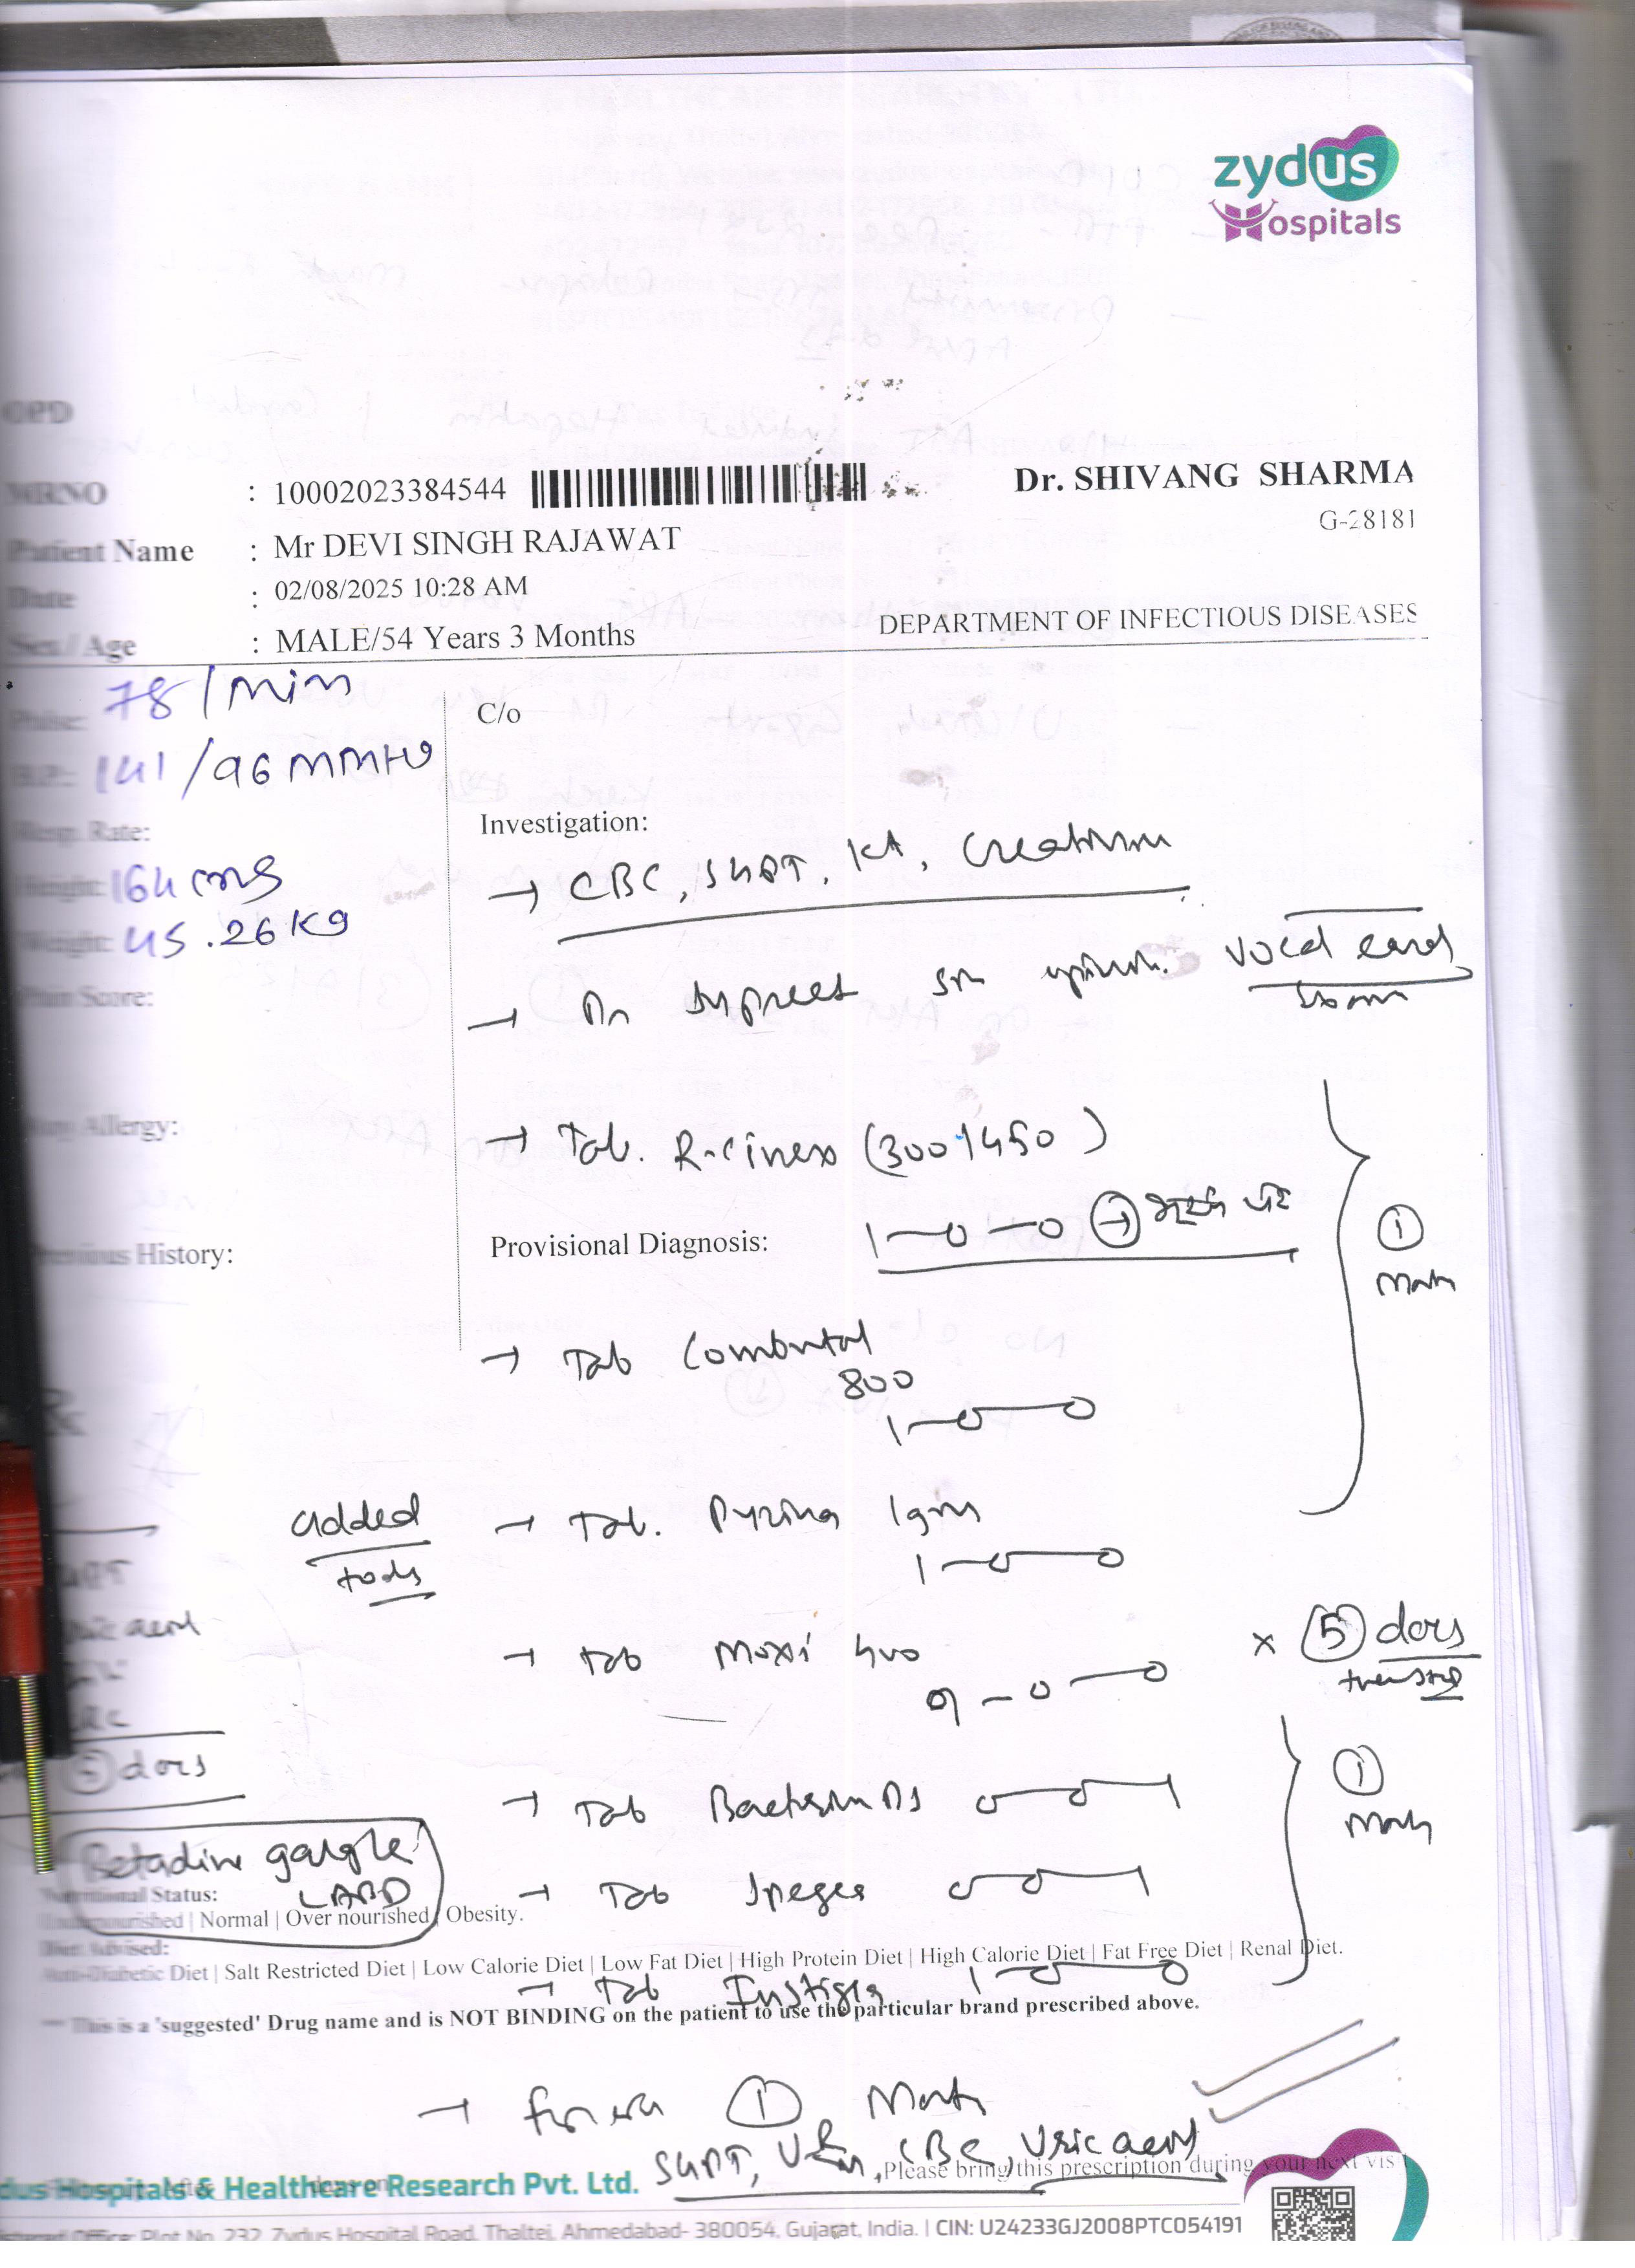 zydus
Hospitals
OPD
MRNO : 10002023384544
Dr. SHIVANG SHARMA
G-28181
Patient Name : Mr DEVI SINGH RAJAWAT
Date : 02/08/2025 10:28 AM
DEPARTMENT OF INFECTIOUS DISEASES
Sex / Age : MALE/54 Years 3 Months
Pulse: 78/min
C/o
B.P.: 141/96 MMHg
Investigation:
Resp. Rate:
→ CBC, SGPT, K+, Creatinine
Height: 164 cms
Weight: 45.26 Kg
→ Dr opinion. vocal cord
Pain Score:
Allergy:
→ Tab. R-cinex (300/450)
Previous History:
Provisional Diagnosis: 1-0-0 →
① Month
→ Tab Combutol
800
1-0-0
added → Tab. Pyzina 1gm
today 1-0-0
→ Tab Moxi 400 × ⑤ days
0-0
uric acid
days
→ Tab Bactrim DS 0-0-1
① Month
Betadine gargle
→ Tab 0-0-1
Nutritional Status:
Undernourished | Normal | Over nourished | Obesity.
Diet Advised:
Anti-Diabetic Diet | Salt Restricted Diet | Low Calorie Diet | Low Fat Diet | High Protein Diet | High Calorie Diet | Fat Free Diet | Renal Diet.
→ Tab 1-0-0
This is a 'suggested' Drug name and is NOT BINDING on the patient to use the particular brand prescribed above.
→ ① Month
SGPT, CBC, Uric acid
Please bring this prescription during your next visit
dus Hospitals & Healthcare Research Pvt. Ltd.
istered Office: Plot No. 232, Zydus Hospital Road, Thaltej, Ahmedabad- 380054, Gujarat, India. | CIN: U24233GJ2008PTC054191